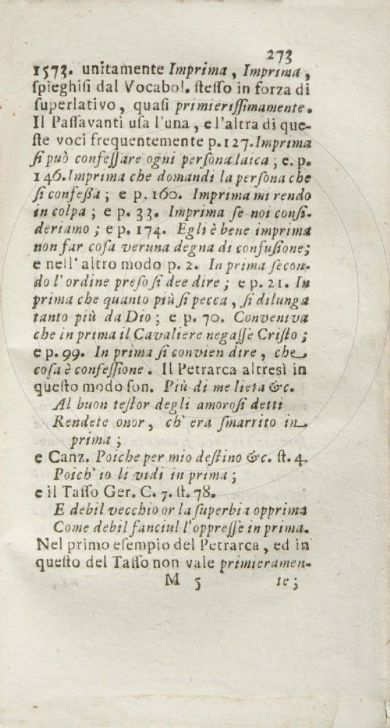 273
1573. unitamente Imprima, Imprima,
spieghisi dal Vocabol. stesso in forza di
superlativo, quasi primierissimamente.
Il Passavanti usa l'una, e l'altra di que-
ste voci frequentemente p. 127. Imprima
si può confessare ogni persona laica; e. p.
146. Imprima che domandi la persona che
si confessa; e p. 160. Imprima mi rendo
in colpa; e p. 33. Imprima se noi consi-
deriamo; e p. 174. Egli è bene imprima
non far cosa veruna degna di confusione;
e nell'altro modo p. 2. In prima secon-
do l'ordine preso si dee dire; e p. 21. In
prima che quanto più si pecca, si dilunga
tanto più da Dio; e p. 70. Conveniva
che in prima il Cavaliere negasse Cristo;
e p. 99. In prima si convien dire, che
cosa è confessione. Il Petrarca altresì in
questo modo son. Più di me lieta &c.
Al buon testor degli amorosi detti
Rendete onor, ch'era smarrito in
prima;
e Canz. Poiche per mio destino &c. st. 4.
Poich' io li vidi in prima;
e il Tasso Ger. C. 7. st. 78.
E debil vecchio or la superbia opprima
Come debil fanciul l'oppresse in prima.
Nel primo esempio del Petrarca, ed in
questo del Tasso non vale primieramen-
M 5 te;